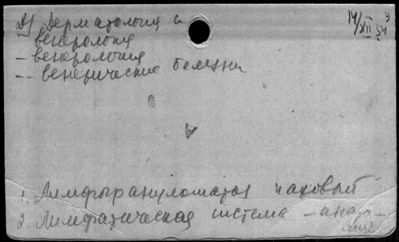 Дерматология и
венерология
- венерология
-- венерические болезни
1. Лимфогрануломатоз паховый
2. Лимфатическая система - анато-
мия